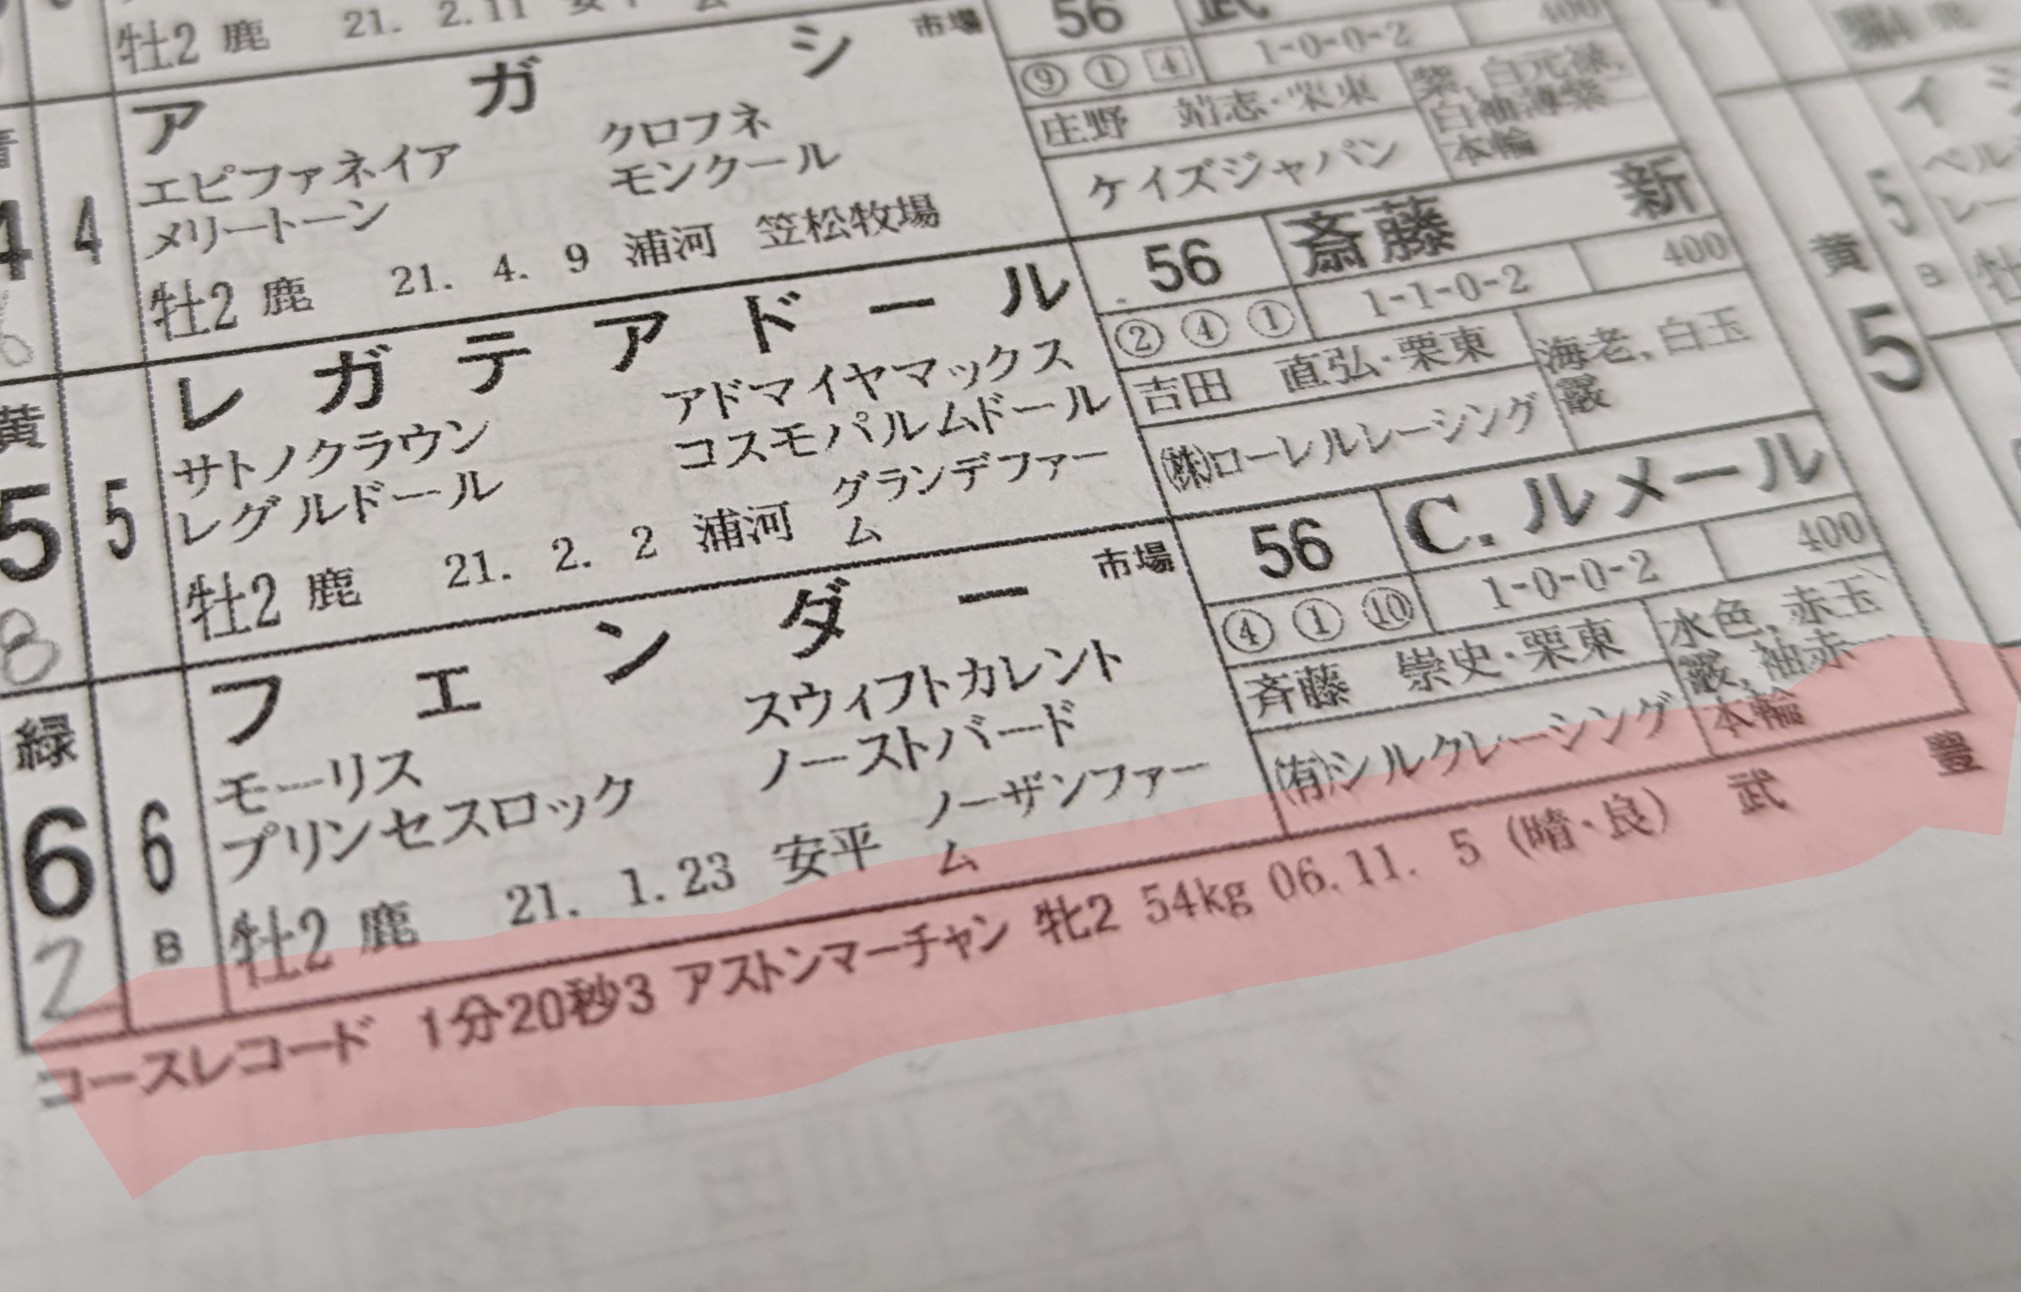 牡2 鹿 21. 2.11 安平
56 武
400
1-0-0-2
ア ガ シ 市場
⑨ ① 4
4 4
エピファネイア クロフネ
メリートーン モンクール
庄野 靖志・栗東
紫,白元禄,
白袖薄紫
本輪
ケイズジャパン
牡2 鹿 21. 4. 9 浦河 笠松牧場
レ ガ テ ア ド ー ル
56 斎藤 新
400
1-1-0-2
② ④ ①
黄
5 5
8
サトノクラウン アドマイヤマックス
レグルドール コスモパルムドール
吉田 直弘・栗東
海老,白玉
霰
㈱ローレルレーシング
牡2 鹿 21. 2. 2 浦河 グランデファー
ム
フ ェ ン ダ ー 市場
56 C.ルメール
400
1-0-0-2
④ ① ⑩
緑
6 6
2 B
モーリス スウィフトカレント
プリンセスロック ノーストバード
斉藤 崇史・栗東
水色,赤玉
霰,袖赤一
本輪
㈲シルクレーシング
牡2 鹿 21. 1.23 安平 ノーザンファー
ム
コースレコード 1分20秒3 アストンマーチャン 牝2 54kg 06.11. 5 (晴・良) 武 豊
5
黄
5
B
イ
ベル
レー
牡